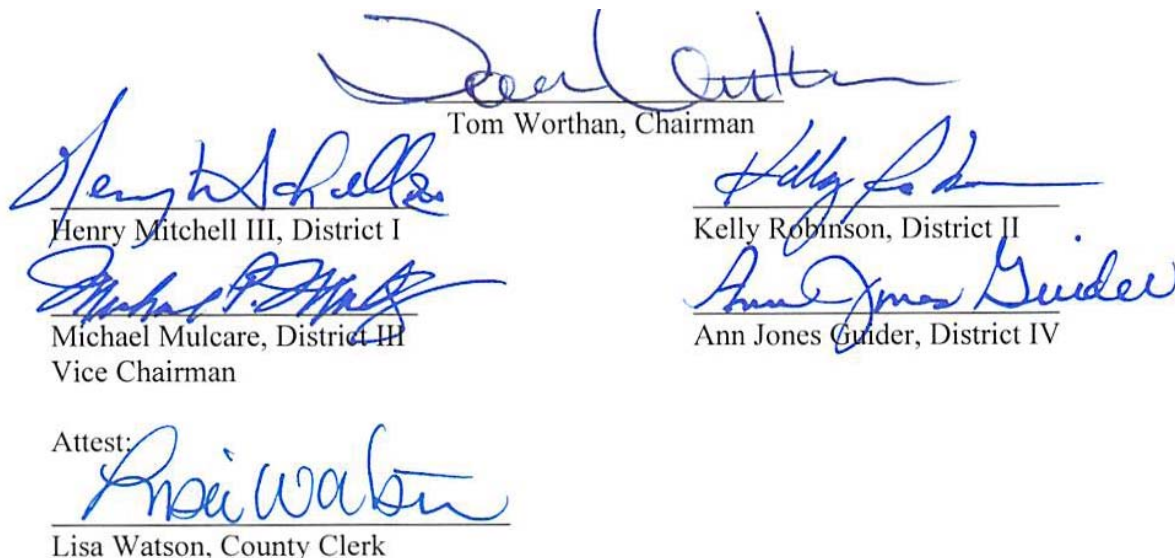 Tom Worthan, Chairman
Henry Mitchell III, District I
Kelly Robinson, District II
Michael Mulcare, District III
Vice Chairman
Ann Jones Guider
Ann Jones Guider, District IV
Attest:
Lisa Watson
Lisa Watson, County Clerk